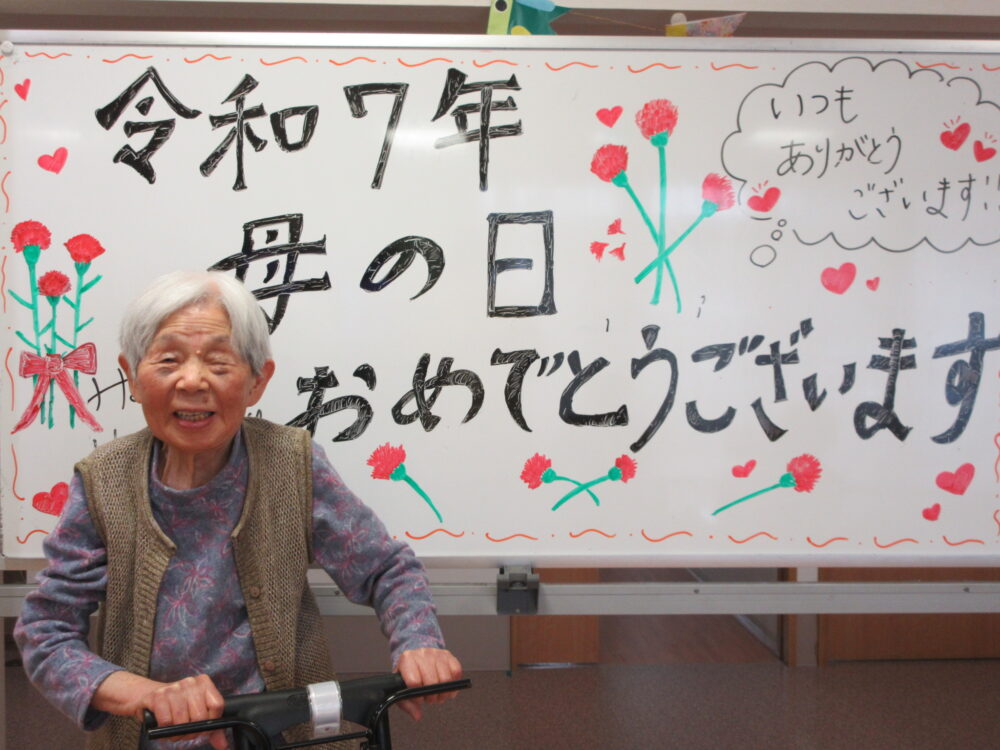 令和7年
母の日
おめでとうございます
いつも
ありがとう
ございます!!